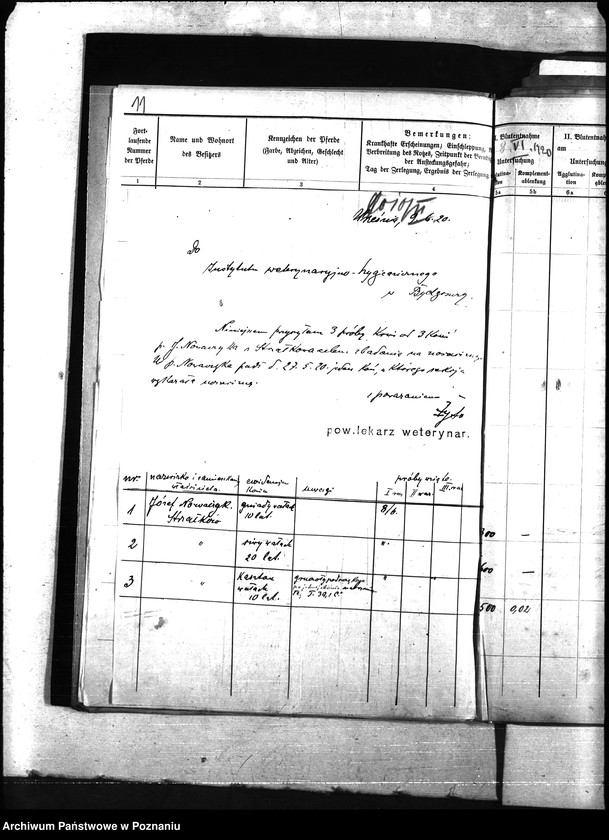 11
Fort-
laufende
Nummer
der Pferde
Name und Wohnort
des Besitzers
Kennzeichen der Pferde
(Farbe, Abzeichen, Geschlecht
und Alter)
Bemerkungen:
Krankhafte Erscheinungen; Einschleppung,
Verbreitung des Rotzes, Zeitpunkt der
der Ansteckungsgefahr;
Tag der Zerlegung, Ergebnis der Zerlegung
I. Blutentnahme
VI. 1920
Untersuchung
Komplement-
ablenkung
II. Blutentnahme
am
Untersuchung
Agglutina-
tion
1 2 3 4 5a 5b 6a
Września, 9.6.20.
Do
Instytutu weterynaryjno-hygienicznego
w Bydgoszczy.
Niniejszem przysyłam 3 próby krwi od 3 koni
p. J. Nowaczyka z Strzałkowa celem zbadania na nosaciznę.
U p. Nowaczyka padł d. 27. 5. 20. jeden koń, u którego sekcja
wykazała nosaciznę.
z poważaniem
pow.lekarz weterynar.
nr. nazwisko i zamieszkanie
właściciela.
konia
uwagi
próby wzięto
I raz II raz III raz
1 Józef Nowaczyk
Strzałkow
gniady wałach
10 lat.
8/6.
2 " siwy wałach
20 lat.
"
3 " Kasztan
wałach
10 lat.
"
300 —
600 —
500 0,02
Archiwum Państwowe w Poznaniu